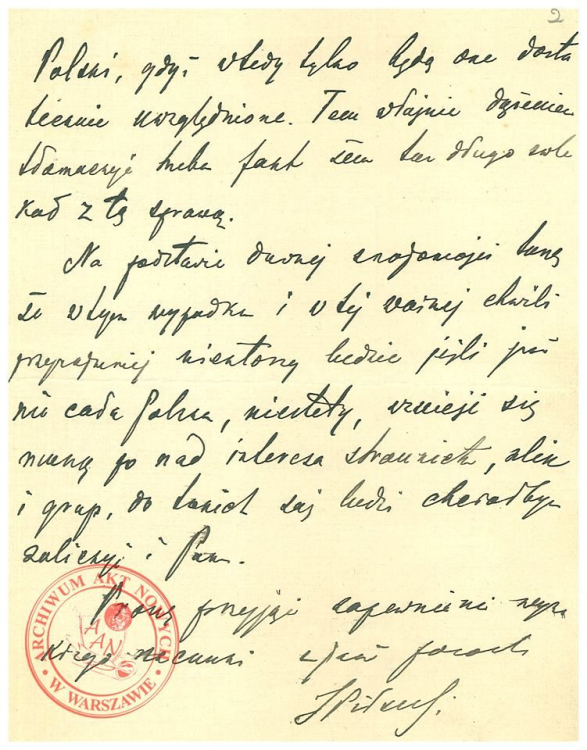 2
Polski, gdyż wtedy tylko będą one dosta
tecznie uwzględnione. Tem właśnie dążeniem
tłomaczyć trzeba fakt żem tak długo zwle
kał z tą sprawą.
Na podstawie dawnej znajomości
że w tym wypadku i w tej ważnej chwili
przynajmniej niektórzy ludzie jeśli już
nie cała Polska, niestety, wznieść się
mogą po nad interesa stronnictw, klik
i grup, do takich zaś ludzi chciałbym
zaliczyć i Pana.
Proszę przyjąć zapewnienie wyso
kiego szacunku z
JPiłsudski
ARCHIWUM AKT NOWYCH
AAN
W WARSZAWIE